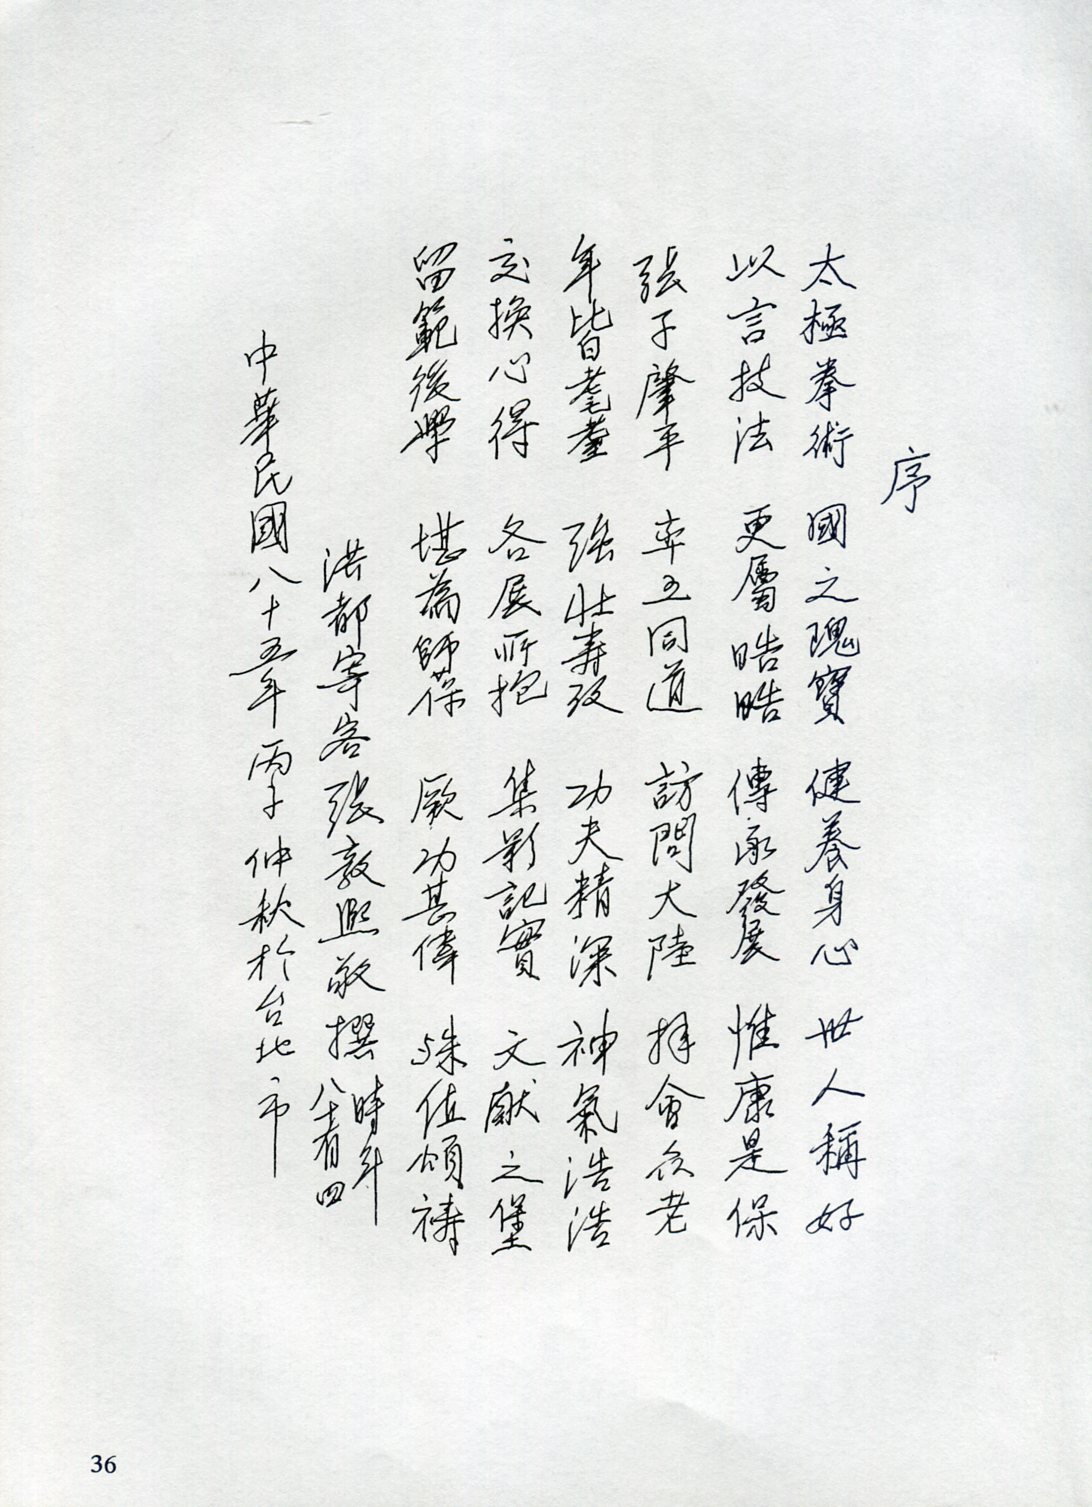 序
太極拳術 國之瑰寶 健養身心 世人稱好
以言技法 更屬皓皓 傳承發展 惟康是保
張子肇平 率五同道 訪問大陸 拜會众老
年皆耄耋 強壯壽考 功夫精深 神氣浩浩
交換心得 各展所抱 集影記實 文獻之堡
留範後學 堪為師葆 厥功甚偉 殊值頌禱
洪都寄客張敦熙敬撰 時年八十有四
中華民國八十五年丙子仲秋於台北市
36